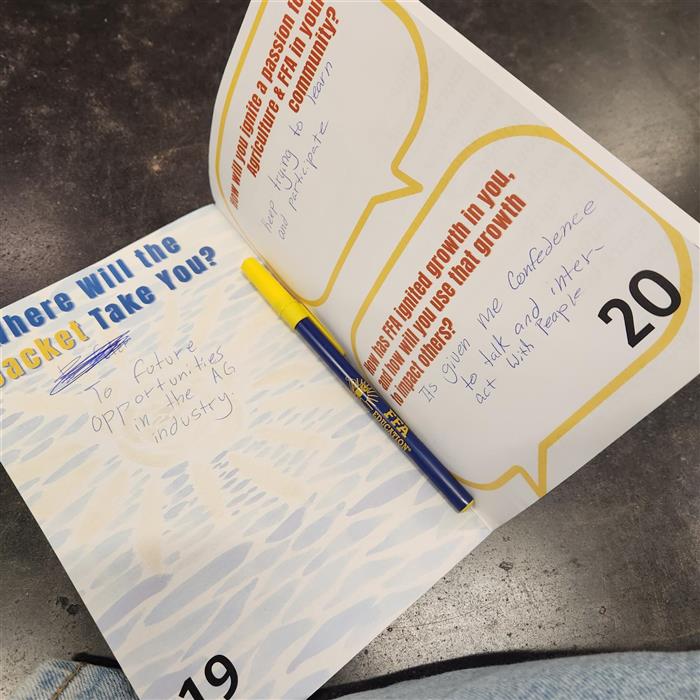 Where Will the
Jacket Take You?
To future
opportunities
in the AG
industry.
19
How will you ignite a passion
Agriculture & FFA in your
community?
keep trying to learn
and participate
How has FFA ignited growth in you,
and how will you use that growth
to impact others?
Its given me Confedence
to talk and inter-
act with People
20
FFA
EDUCATION